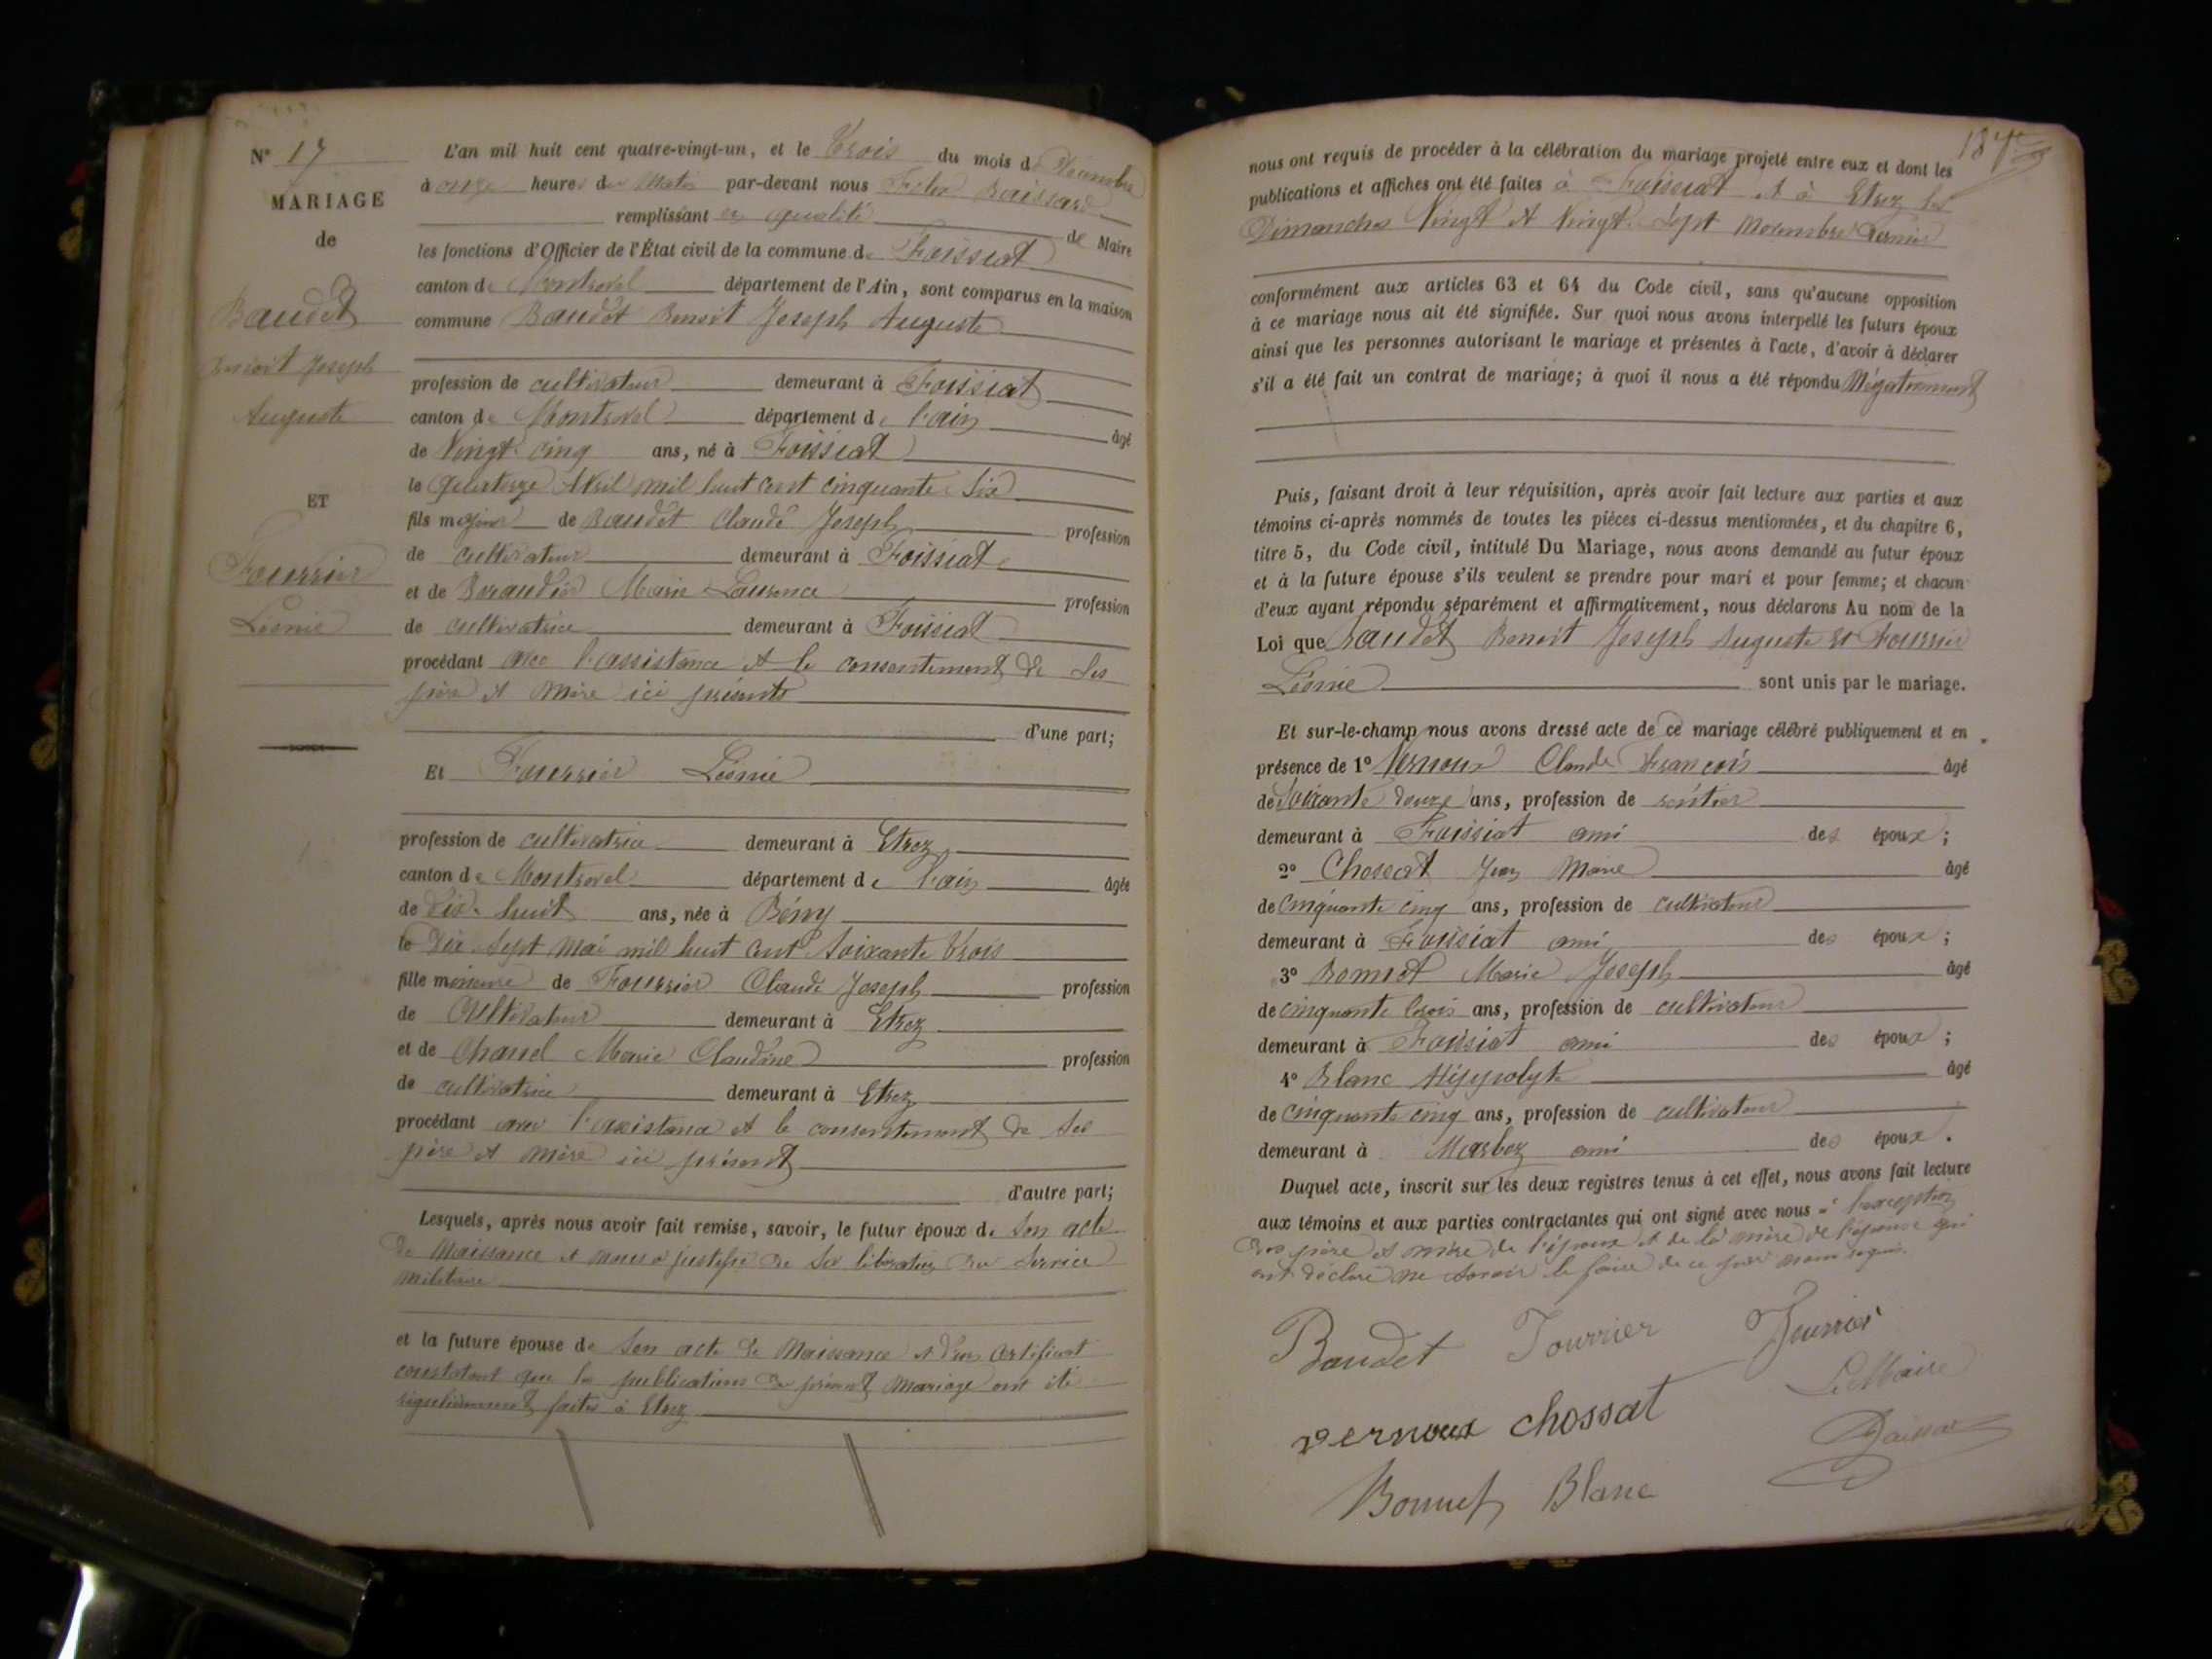 N° 17
MARIAGE
de
Baudet
Benoit Joseph
Auguste
ET
Fourrier
Léonie
L'an mil huit cent quatre-vingt-un, et le Trois du mois de Décembre
à onze heures du Matin par-devant nous Felix Baissard
remplissant en qualité de Maire
les fonctions d'Officier de l'État civil de la commune de Foissiat
canton de Montrevel département de l'Ain, sont comparus en la maison
commune Baudet Benoit Joseph Auguste
profession de cultivateur demeurant à Foissiat
canton de Montrevel département de l'ain âgé
de Vingt cinq ans, né à Foissiat
le quatorze Avril mil huit cent cinquante six
fils majeur de Baudet Claude Joseph profession
de cultivateur demeurant à Foissiat
et de Beraudier Marie Laurence profession
de cultivatrice demeurant à Foissiat
procédant avec l'assistance et le consentement de ses
père et mère ici présents
d'une part;
Et Fourrier Léonie
profession de cultivatrice demeurant à Etrez
canton de Montrevel département de l'ain âgée
de dix huit ans, née à Bény
le dix sept mai mil huit cent soixante trois
fille mineure de Fourrier Claude Joseph profession
de Cultivateur demeurant à Etrez
et de Chanel Marie Claudine profession
de cultivatrice demeurant à Etrez
procédant avec l'assistance et le consentement de ses
père et mère ici présents
d'autre part;
Lesquels, après nous avoir fait remise, savoir, le futur époux de son acte
de Naissance et nous a justifié de sa libération du service
militaire
et la future épouse de son acte de Naissance et d'un certificat
constatant que les publications du présent mariage ont été
régulièrement faites à Etrez
nous ont requis de procéder à la célébration du mariage projeté entre eux et dont les
publications et affiches ont été faites à Foissiat et à Etrez les
Dimanches Vingt et Vingt Sept Novembre dernier
conformément aux articles 63 et 64 du Code civil, sans qu'aucune opposition
à ce mariage nous ait été signifiée. Sur quoi nous avons interpellé les futurs époux
ainsi que les personnes autorisant le mariage et présentes à l'acte, d'avoir à déclarer
s'il a été fait un contrat de mariage; à quoi il nous a été répondu Négativement
Puis, faisant droit à leur réquisition, après avoir fait lecture aux parties et aux
témoins ci-après nommés de toutes les pièces ci-dessus mentionnées, et du chapitre 6,
titre 5, du Code civil, intitulé Du Mariage, nous avons demandé au futur époux
et à la future épouse s'ils veulent se prendre pour mari et pour femme; et chacun
d'eux ayant répondu séparément et affirmativement, nous déclarons Au nom de la
Loi que Baudet Benoit Joseph Auguste et Fourrier
Léonie sont unis par le mariage.
Et sur-le-champ nous avons dressé acte de ce mariage célébré publiquement et en
présence de 1° Vernoux Claude François âgé
de soixante douze ans, profession de rentier
demeurant à Foissiat ami des époux;
2° Chossat Jean Marie âgé
de cinquante cinq ans, profession de cultivateur
demeurant à Foissiat ami des époux;
3° Bonnet Marie Joseph âgé
de cinquante trois ans, profession de cultivateur
demeurant à Foissiat ami des époux;
4° Blanc Hippolyte âgé
de cinquante cinq ans, profession de cultivateur
demeurant à Marboz ami des époux.
Duquel acte, inscrit sur les deux registres tenus à cet effet, nous avons fait lecture
aux témoins et aux parties contractantes qui ont signé avec nous à l'exception
des père et mère de l'époux et de la mère de l'épouse qui
ont déclaré ne savoir le faire de ce
Baudet Fourrier Fourrier
Le Maire
vernoux chossat
Baissard
Bonnet Blanc